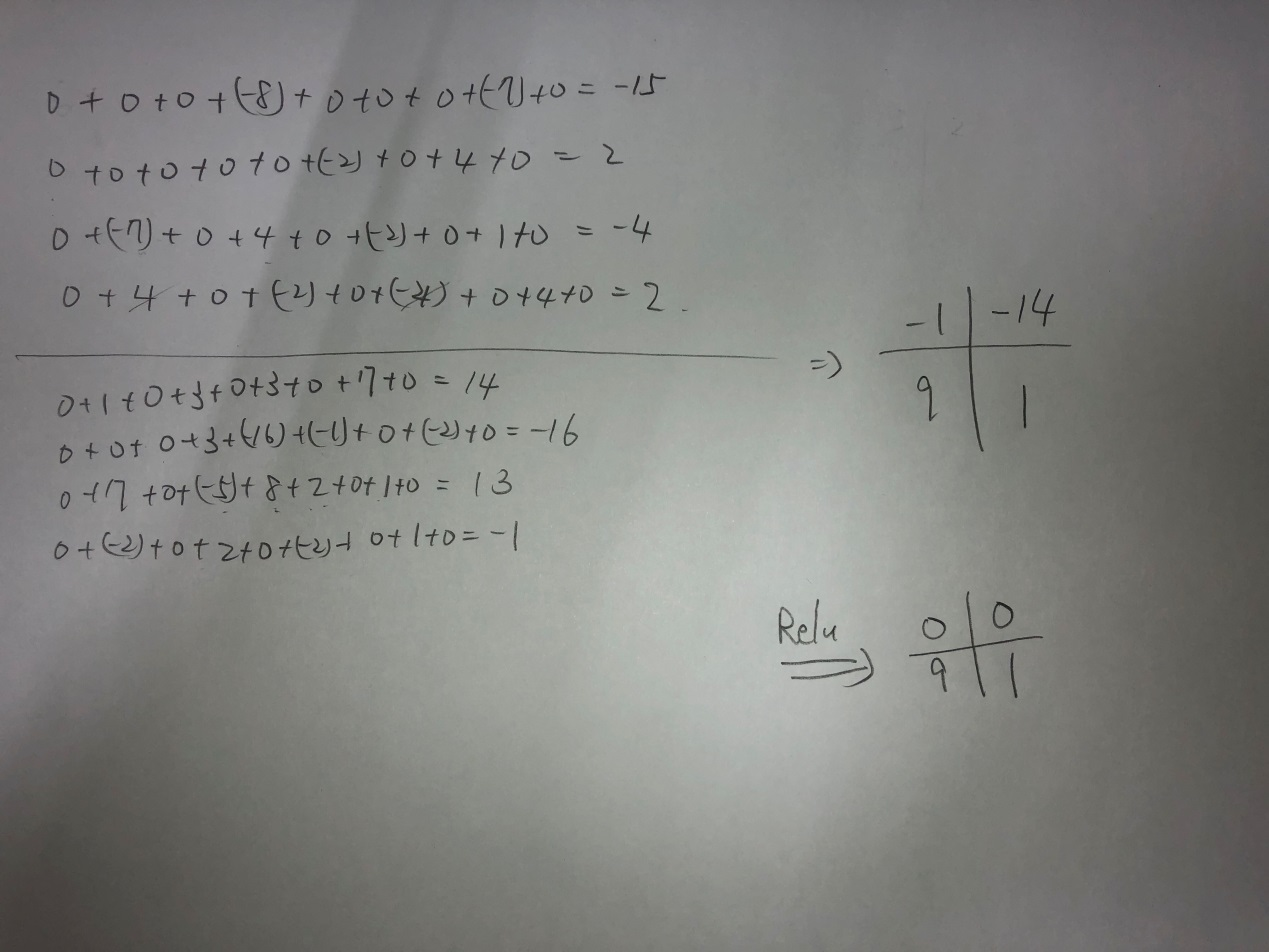 0 + 0 + 0 + (-8) + 0 + 0 + 0 + (-7) + 0 = -15
0 + 0 + 0 + 0 + 0 + (-2) + 0 + 4 + 0 = 2
0 + (-7) + 0 + 4 + 0 + (-2) + 0 + 1 + 0 = -4
0 + 4 + 0 + (-2) + 0 + (-4) + 0 + 4 + 0 = 2
0 + 1 + 0 + 3 + 0 + 3 + 0 + 7 + 0 = 14
0 + 0 + 0 + 3 + (-16) + (-1) + 0 + (-2) + 0 = -16
0 + 7 + 0 + (-5) + 8 + 2 + 0 + 1 + 0 = 13
0 + (-2) + 0 + 2 + 0 + (-2) + 0 + 1 + 0 = -1
=> -1 | -14
9 | 1
Relu => 0 | 0
9 | 1